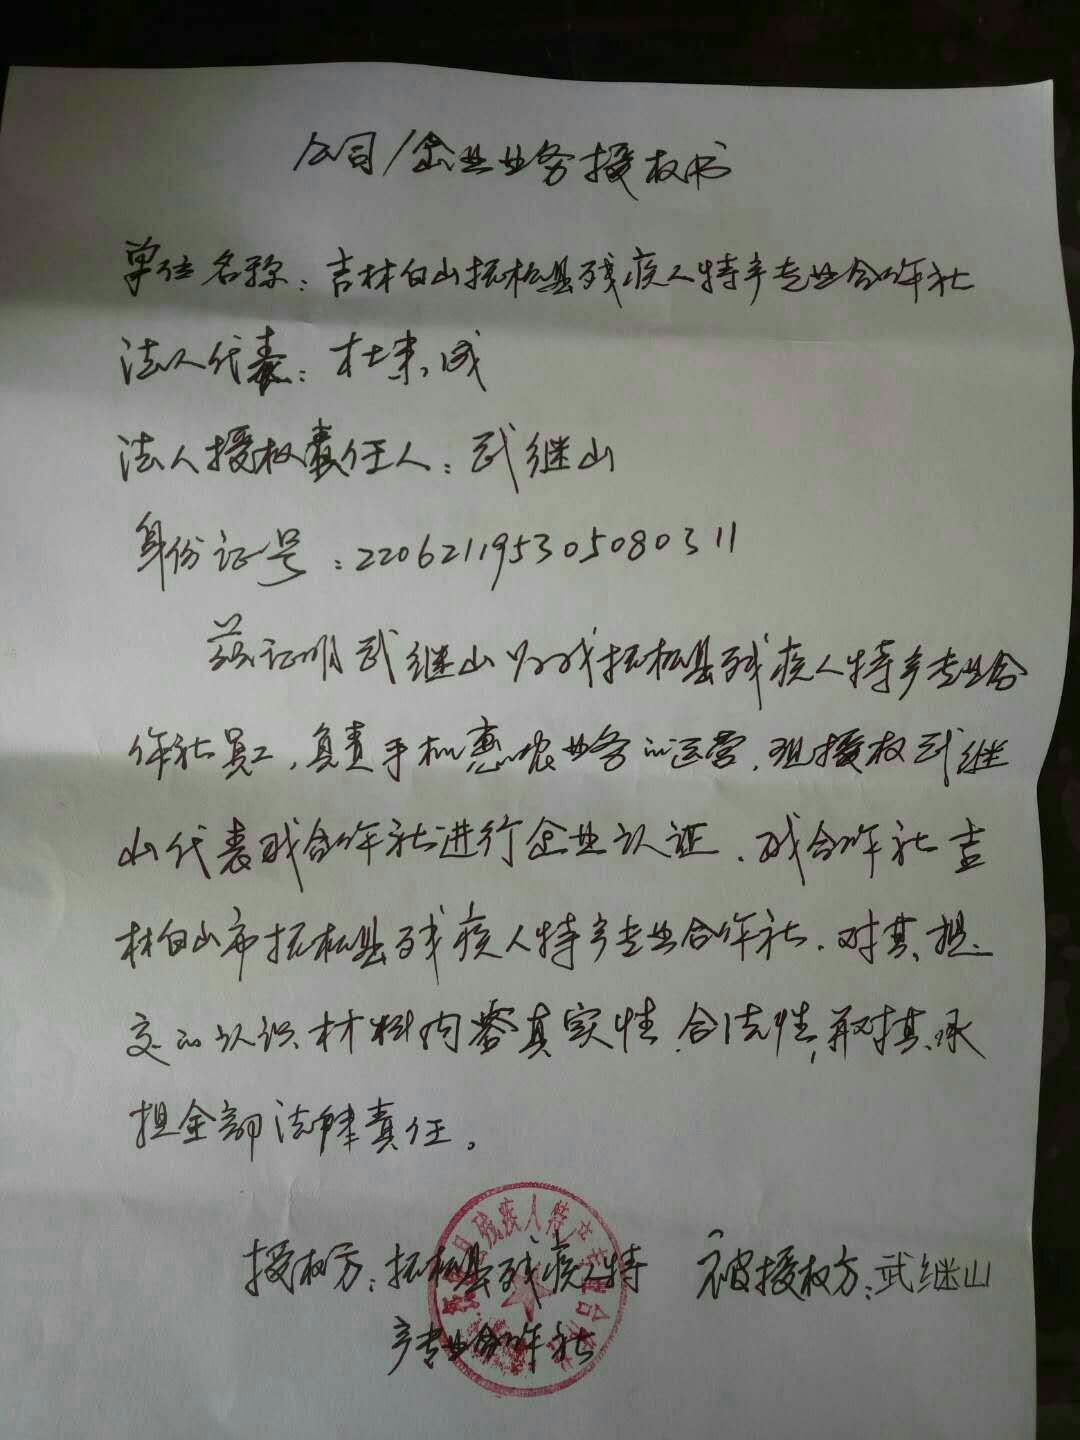 公司/企业业务授权书
单位名称：吉林白山抚松县残疾人特产专业合作社
法人代表：杜来成
法人授权责任人：武继山
身份证号：220621195305080311
兹证明武继山为我抚松县残疾人特产专业合
作社员工，负责手机惠农业务的运营，现授权武继
山代表我合作社进行企业认证，我合作社吉
林白山市抚松县残疾人特产专业合作社，对其提
交的认识材料内容真实性、合法性，并对其承
担全部法律责任。
授权方：抚松县残疾人特
产专业合作社
被授权方：武继山
县残疾人特产专业合作社